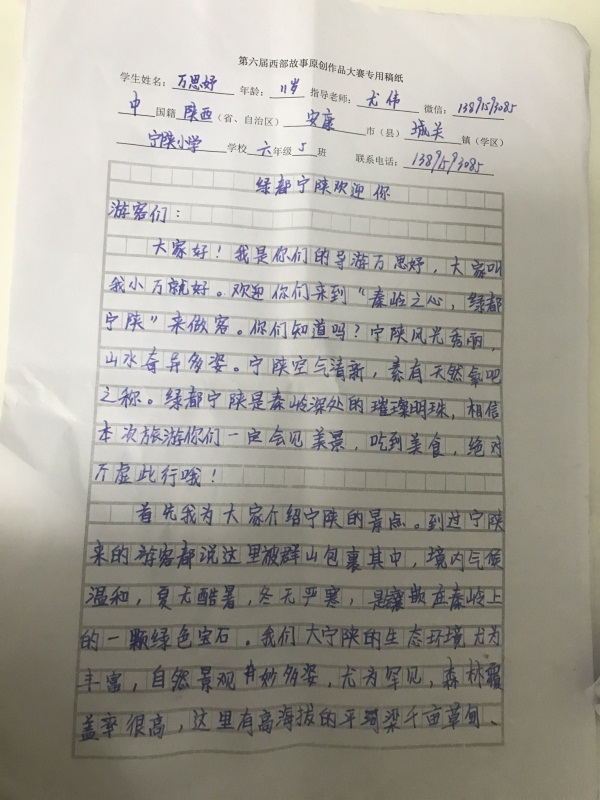 第六届西部故事原创作品大赛专用稿纸
学生姓名：万思妤 年龄：11岁 指导老师：尤伟 微信：13891593085
中 国籍 陕西（省、自治区） 安康 市（县） 城关 镇（学区）
宁陕小学 学校 六 年级 5 班 联系电话：13891593085
绿都宁陕欢迎你
游客们：
大家好！我是你们的导游万思妤，大家叫
我小万就好。欢迎你们来到“秦岭之心，绿都
宁陕”来做客。你们知道吗？宁陕风光秀丽，
山水奇异多姿。宁陕空气清新，素有天然氧吧
之称。绿都宁陕是秦岭深处的璀璨明珠，相信
本次旅游你们一定会见美景，吃到美食，绝对
不虚此行哦！
首先我为大家介绍宁陕的景点。到过宁陕
来的游客都说这里被群山包裹其中，境内气候
温和，夏无酷暑，冬无严寒，是镶嵌在秦岭上
的一颗绿色宝石。我们大宁陕的生态环境尤为
丰富，自然景观 妙多姿，尤为罕见，森林覆
盖率很高，这里有高海拔的平河梁千亩草甸、